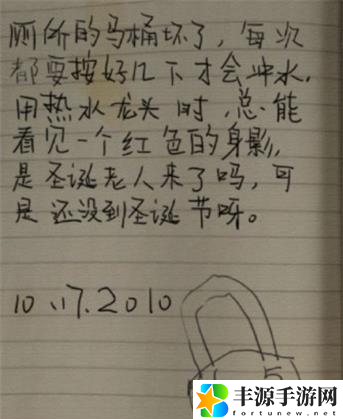 厕所的马桶坏了，每次
都要按好几下才会冲水，
用热水龙头时，总能
看见一个红色的身影，
是圣诞老人来了吗，可
是还没到圣诞节呀。
10.17.2010
5
丰源手游网
www.fortunew.net